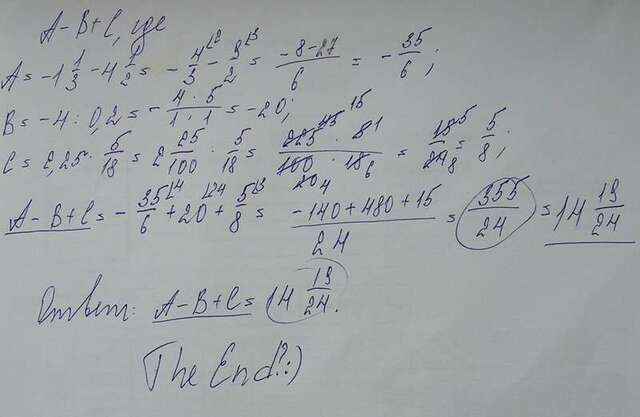 A-B+C, где
A = -1 1/3 - 4 1/2 = - 4/3 - 9/2 = (-8-27)/6 = - 35/6;
B = -4 : 0,2 = - (4 · 5)/(1 · 1) = -20;
C = 2,25 · 5/18 = 2 25/100 · 5/18 = (225 45 15 · 5 1)/(100 20 4 · 18 6) = 15/24 5/8 = 5/8;
A-B+C = - 35/6 + 20 + 5/8 = (-140+480+15)/24 = 355/24 = 14 19/24
Ответ: A-B+C = 14 19/24.
The End?:)